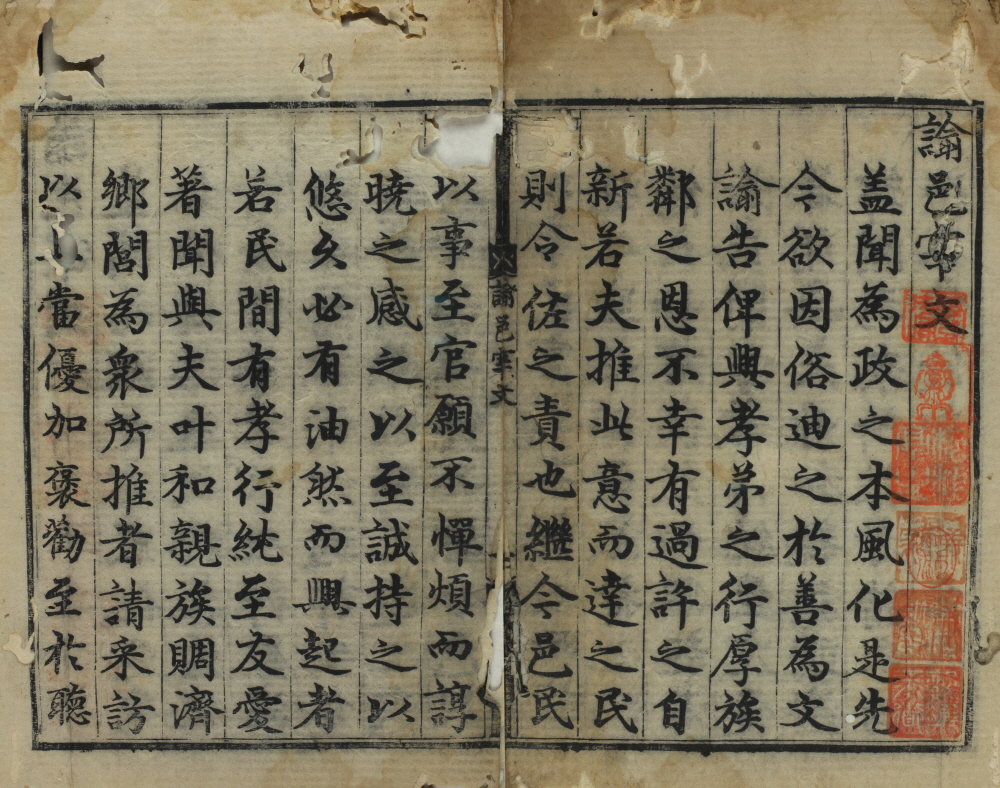 諭邑宰文
盖聞為政之本風化是先
今欲因俗迪之於善為文
諭告俾興孝弟之行厚族
鄰之恩不幸有過許之自
新若夫推此意而達之民
則令佐之責也繼今邑民
諭邑宰文
以事至官願不憚煩而諄
曉之感之以至誠持之以
悠久必有油然而興起者
若民間有孝行純至友愛
著聞與夫叶和親族賙濟
鄉閭為衆所推者請采訪
以 當優加褒勸至於聽